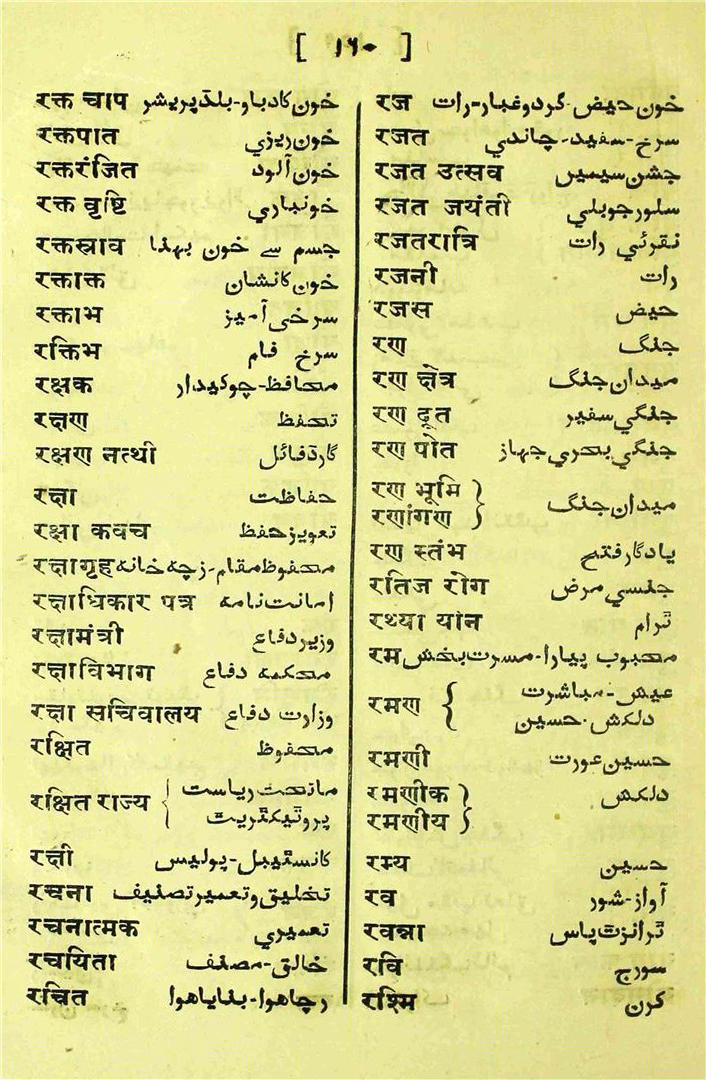 [ ۱۶۰ ]
रक्त चाप خون کا دباو-بلڈ پریشر
रक्तपात خون ریزي
रक्तरंजित خون آلود
रक्त वृष्टि خونباري
रक्तस्राव جسم سے خون بہنا
रक्ताक्त خون کا نشان
रक्ताभ سرخی آمیز
रक्तिभ سرخ فام
रक्षक محافظ-چوکیدار
रक्षण تحفظ
रक्षण नत्थी گارڈ فائل
रक्षा حفاظت
रक्षा कवच تعویز حفظ
रक्षागृह محفوظ مقام-زچہ خانہ
रक्षाधिकार पत्र امانت نامہ
रक्षामंत्री وزیر دفاع
रक्षाविभाग محکمہ دفاع
रक्षा सचिवालय وزارت دفاع
रक्षित محفوظ
रक्षित राज्य { ماتحت ریاست
پروٹیکٹریٹ
रक्षी کانسٹیبل-پولیس
रचना تخلیق و تعمیر تصنیف
रचनात्मक تعمیري
रचयिता خالق-مصنف
रचित رچا ہوا-بنایا ہوا
रज خون حیض-گرد و غبار-رات
रजत سرخ-سفید-چاندي
रजत उत्सव جشن سیمیں
रजत जयंती سلور جوبلي
रजतरात्रि نقرئي رات
रजनी رات
रजस حیض
रण جنگ
रण क्षेत्र میدان جنگ
रण दूत جنگي سفیر
रण पोत جنگي بحري جہاز
रण भूमि }
रणांगण } میدان جنگ
रण स्तंभ یادگار فتح
रतिज रोग جنسي مرض
रथ्या यान ٹرام
रम محبوب پیارا-مسرت بخش
रमण { عیش-مباشرت
دلکش-حسین
रमणी حسین عورت
रमणीक } دلکش
रमणीय }
रम्य حسین
रव آواز-شور
रवन्ना ٹرانزٹ پاس
रवि سورج
रश्मि کرن